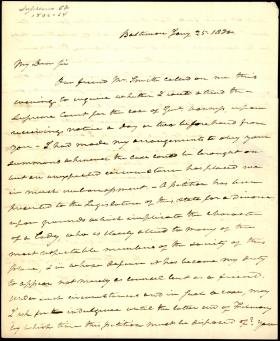 Supreme Ct
Baltimore Jany 25. 18
My Dear Sir
Our friend Mr. Smith called on me this
evening to inquire whether I could attend the
Supreme Court for the case of upon
receiving notice a day or two beforehand from
you - I had made my arrangements to obey your
summons whenever the case could be brought on
but an unexpected circumstance has placed me
in much embarrassment - A petition has been
presented to the Legislature of this state for a divorce
upon grounds which implicate the character
of a Lady, who is nearly allied to many of the
most respectable members of the society of this
place, & in whose defence it has become my duty
to appear not merely as counsel but as a friend.
Under such circumstances and in such a case may
I ask for indulgence until the latter end of February
by which time this petition must be disposed of? You